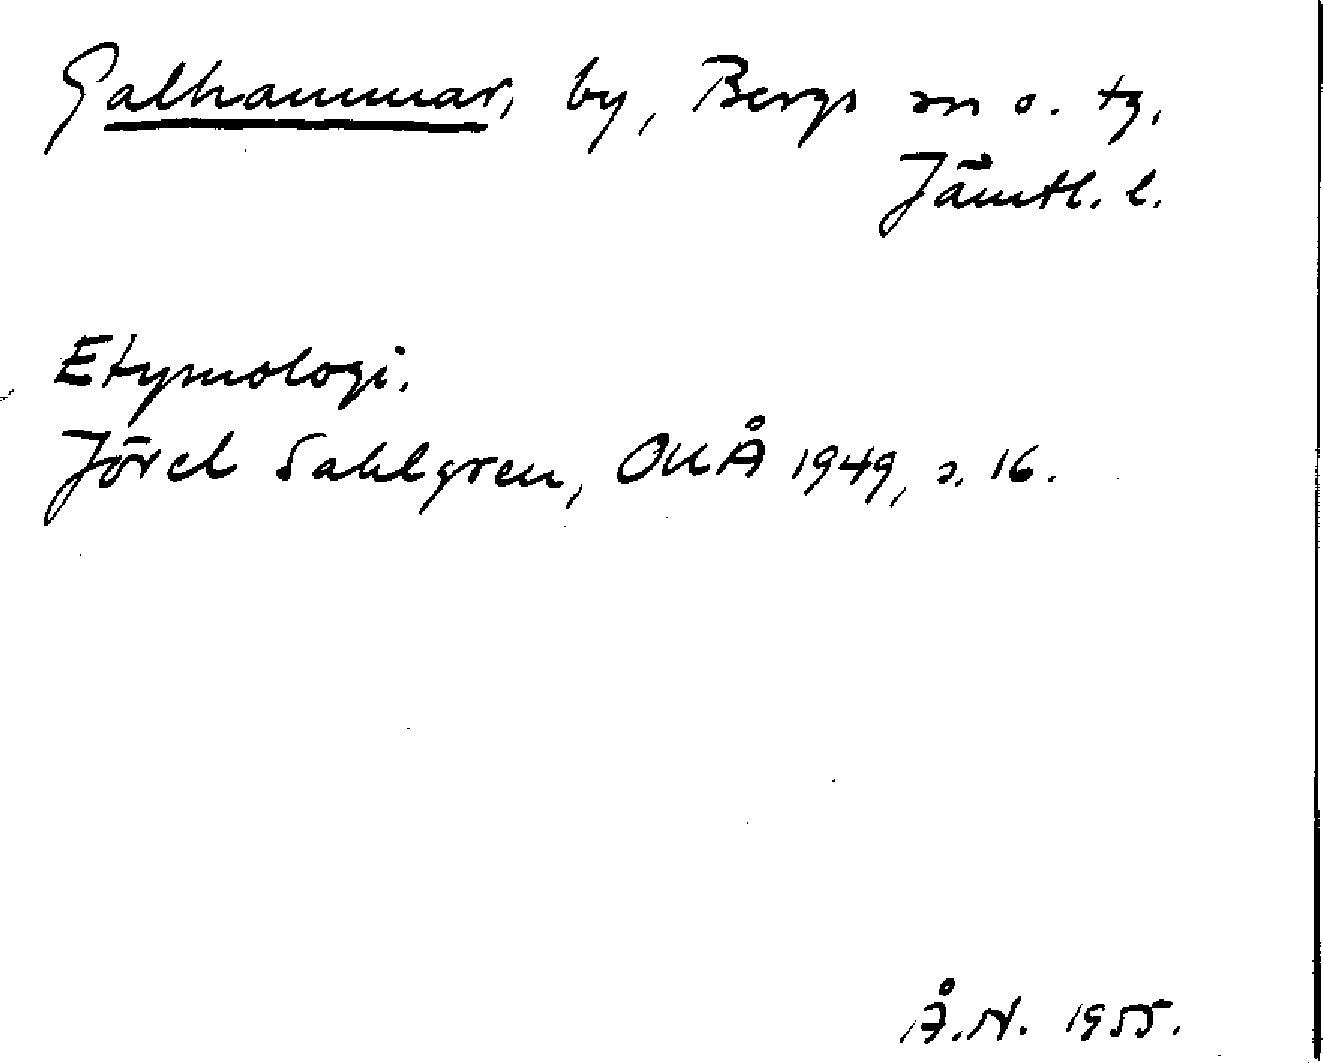 Galhammar, by, Bergs sn o. tg.
Jämtl. l.
Etymologi.
Jöran Sahlgren, OUÅ 1949, s. 16.
Å.N. 1955.